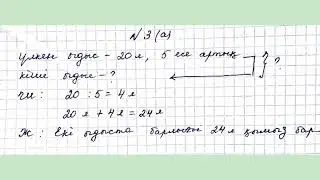 № 3 (а)
үлкен ыдыс – 20 л, 5 есе артық
?
кіші ыдыс – ?
20 : 5 = 4 л
20 л + 4 л = 24 л
Ж: Екі ыдыста барлығы 24 л қымыз бар